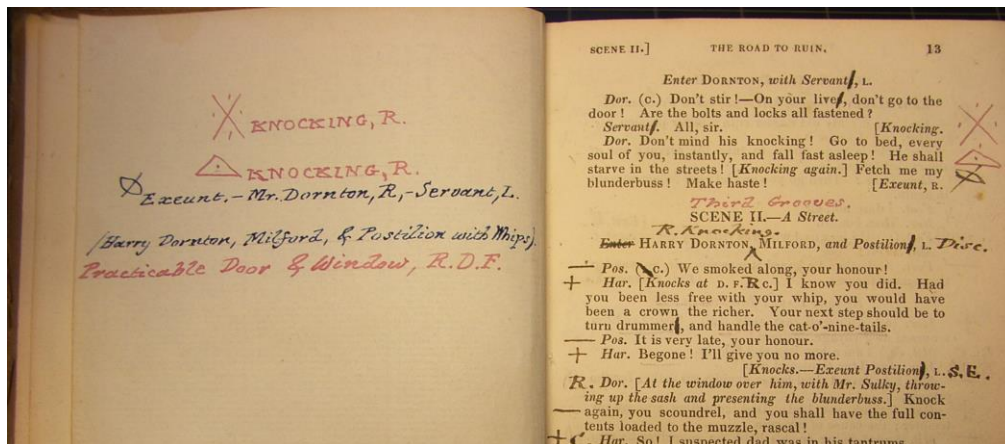 KNOCKING, R.
KNOCKING, R.
Exeunt. - Mr. Dornton, R, - Servant, L.
(Harry Dornton, Milford, & Postilion with Whips).
Practicable Door & Window, R.D.F.
SCENE II.] THE ROAD TO RUIN. 13
Enter DORNTON, with Servant, L.
Dor. (C.) Don't stir!—On your live, don't go to the
door! Are the bolts and locks all fastened?
Servant. All, sir. [Knocking.
Dor. Don't mind his knocking! Go to bed, every
soul of you, instantly, and fall fast asleep! He shall
starve in the streets! [Knocking again.] Fetch me my
blunderbuss! Make haste! [Exeunt, R.
Third Grooves.
SCENE II.—A Street.
R. Knocking.
Enter HARRY DORNTON, MILFORD, and Postilion, L. Disc.
— Pos. (C.) We smoked along, your honour!
+ Har. [Knocks at D. F. R C.] I know you did. Had
you been less free with your whip, you would have
been a crown the richer. Your next step should be to
turn drummer, and handle the cat-o'-nine-tails.
— Pos. It is very late, your honour.
+ Har. Begone! I'll give you no more.
[Knocks.—Exeunt Postilion, L. S. E.
R. Dor. [At the window over him, with Mr. Sulky, throw-
ing up the sash and presenting the blunderbuss.] Knock
— again, you scoundrel, and you shall have the full con-
tents loaded to the muzzle, rascal!
+ C. Har. So! I suspected dad was in his tantrums.